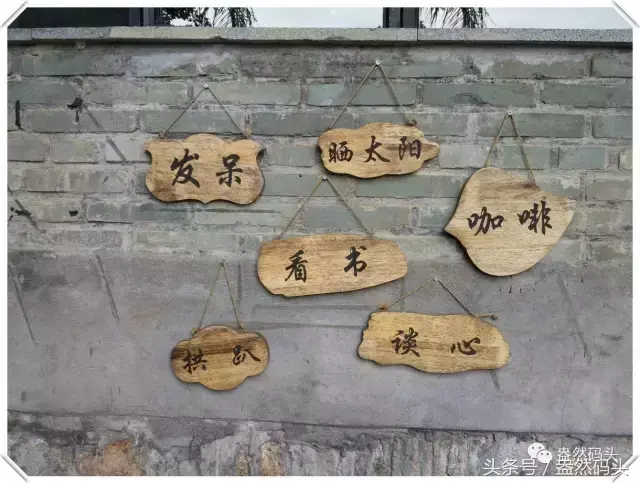 发呆
晒太阳
咖啡
看书
拱趴
谈心
盎然码头
头条号 / 盎然码头